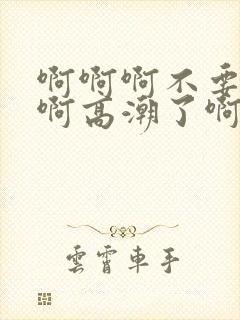 啊啊啊不要
啊高潮了啊
雲霄車手